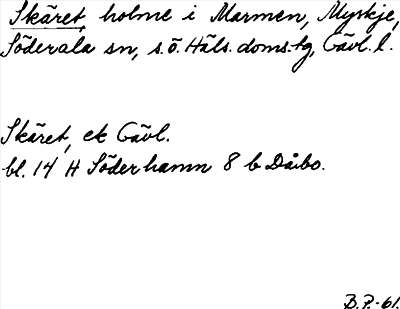 Skäret, holme i Marmen, Myskje,
Söderala sn, s.ö. Häls. doms.tg, Gävl. l.
Skäret, ek Gävl.
bl. 14 H Söderhamn 8 b Dåbo.
B.P.-61.